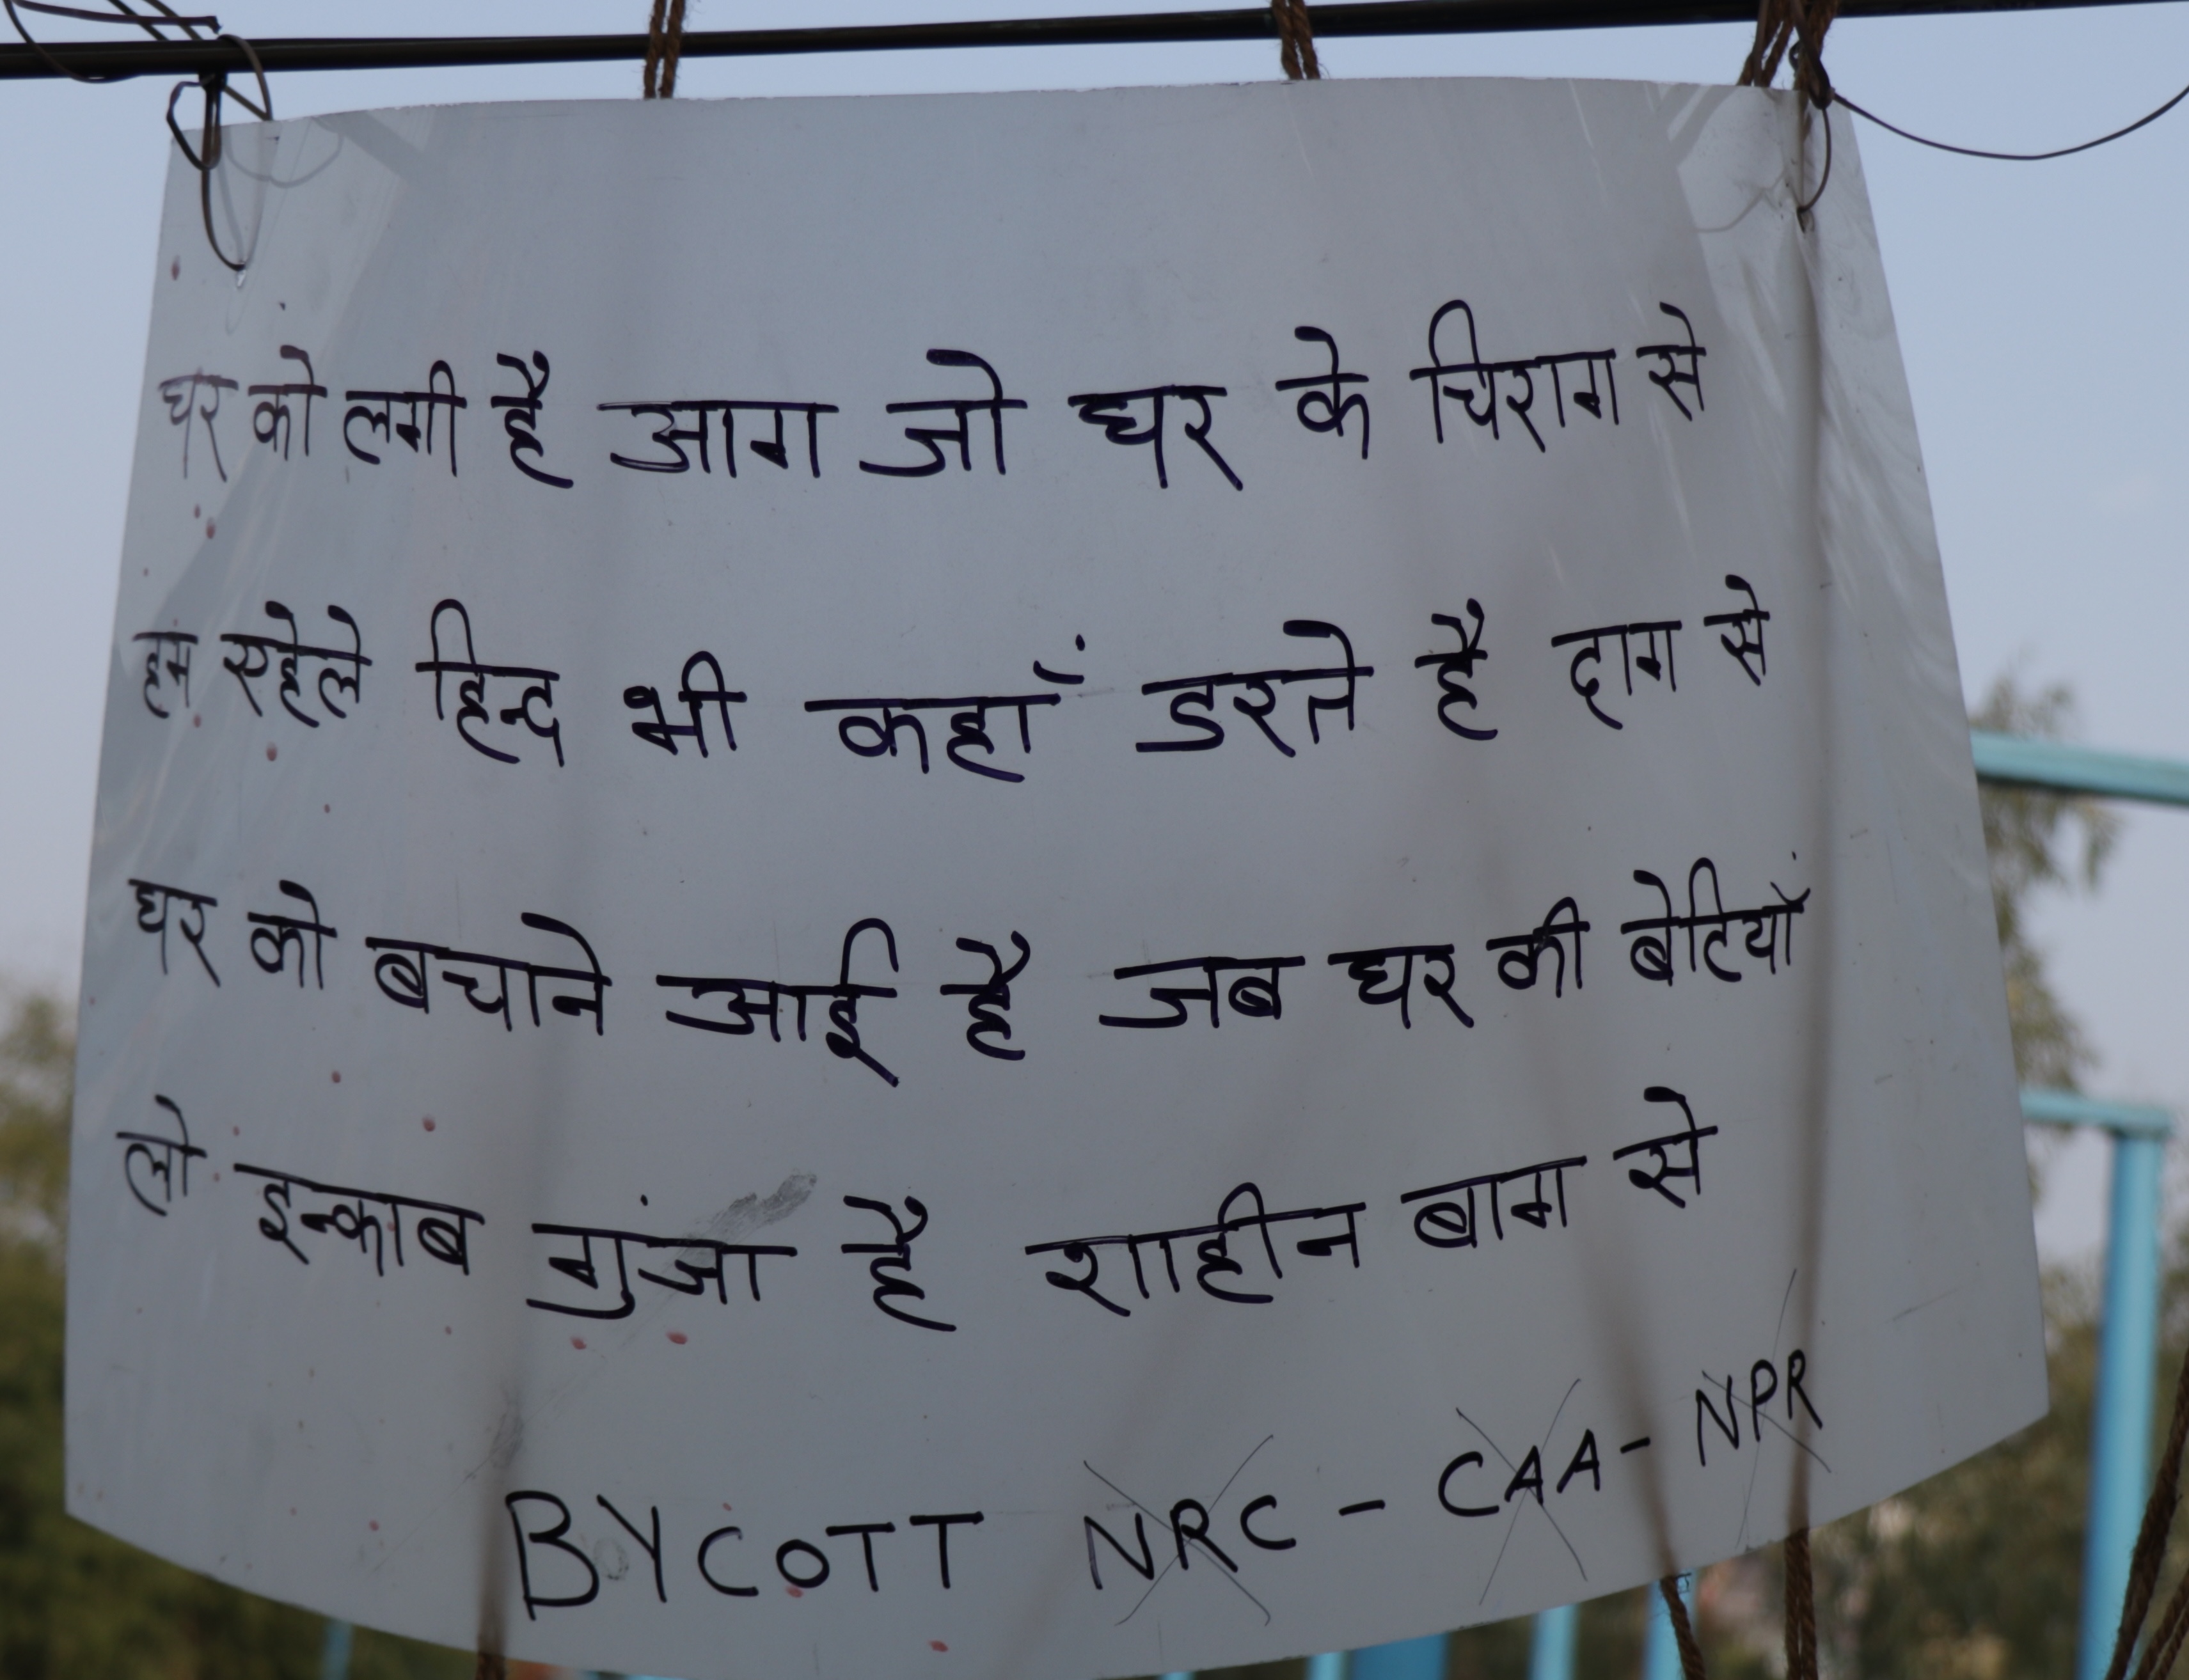 घर को लगी है आग जो घर के चिराग से
हम एहेले हिन्द भी कहाँ डरते है दाग से
घर को बचाने आई है जब घर की बेटियाँ
लो इन्काब गुंजा है शाहीन बाग से
BYCOTT NRC - CAA - NPR